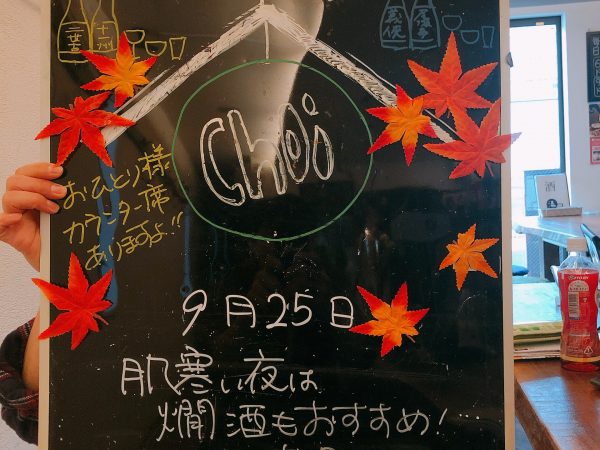 十二六
Choi
おひとり様
カウンター席
ありますよ!!
9月25日
肌寒い夜は
燗酒もおすすめ!
酒